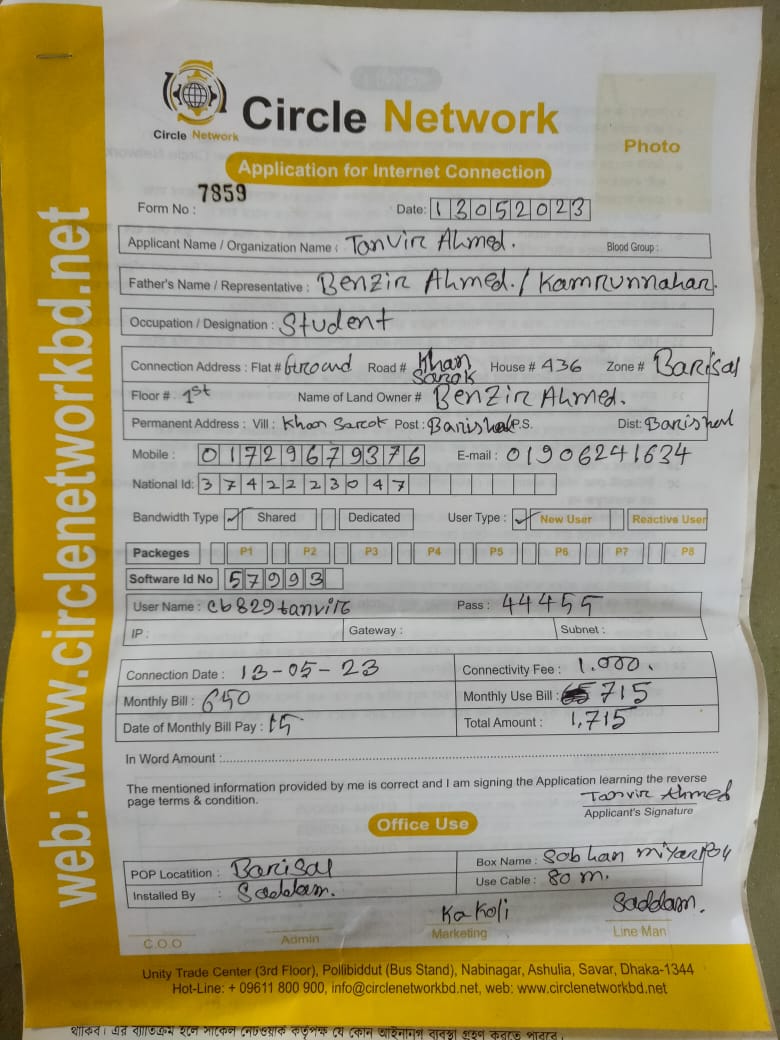 web: www.circlenetworkbd.net
Circle Network
Circle Network
Photo
Application for Internet Connection
Form No : 7859 Date: 13052023
Applicant Name / Organization Name : Tanvir Ahmed. Blood Group :
Father's Name / Representative : Benzir Ahmed. / Kamrunnahar.
Occupation / Designation : Student
Connection Address : Flat # Ground Road # Khan Sarak House # 436 Zone # Barisal
Floor # 1st Name of Land Owner # Benzir Ahmed.
Permanent Address : Vill : Khan Sarak Post : Barishal P.S. Dist: Barishal
Mobile : 01729679376 E-mail : 01906241634
National Id: 3742223047
Bandwidth Type ✓ Shared Dedicated User Type : ✓ New User Reactive User
Packeges P1 P2 P3 P4 P5 P6 P7 P8
Software Id No 57993
User Name : cb829tanvir Pass : 44455
IP : Gateway : Subnet :
Connection Date : 13-05-23 Connectivity Fee : 1.000.
Monthly Bill : 650 Monthly Use Bill : 715
Date of Monthly Bill Pay : 15 Total Amount : 1,715
In Word Amount :
The mentioned information provided by me is correct and I am signing the Application learning the reverse
page terms & condition. Tanvir Ahmed
Applicant's Signature
Office Use
POP Locatition : Barisal Box Name : Sobhan
Installed By : Saddam. Use Cable : 80 m.
Kakoli Saddam.
C.O.O Admin Marketing Line Man
Unity Trade Center (3rd Floor), Pollibiddut (Bus Stand), Nabinagar, Ashulia, Savar, Dhaka-1344
Hot-Line: + 09611 800 900, info@circlenetworkbd.net, web: www.circlenetworkbd.net
থাকিব। এর ব্যাতিক্রম হলে সার্কেল নেটওয়ার্ক কর্তৃপক্ষ যে কোন আইনানুগ ব্যবস্থা গ্রহণ করতে পারবে।